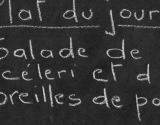 Plat du jour
Salade de
céleri et d
oreilles de po